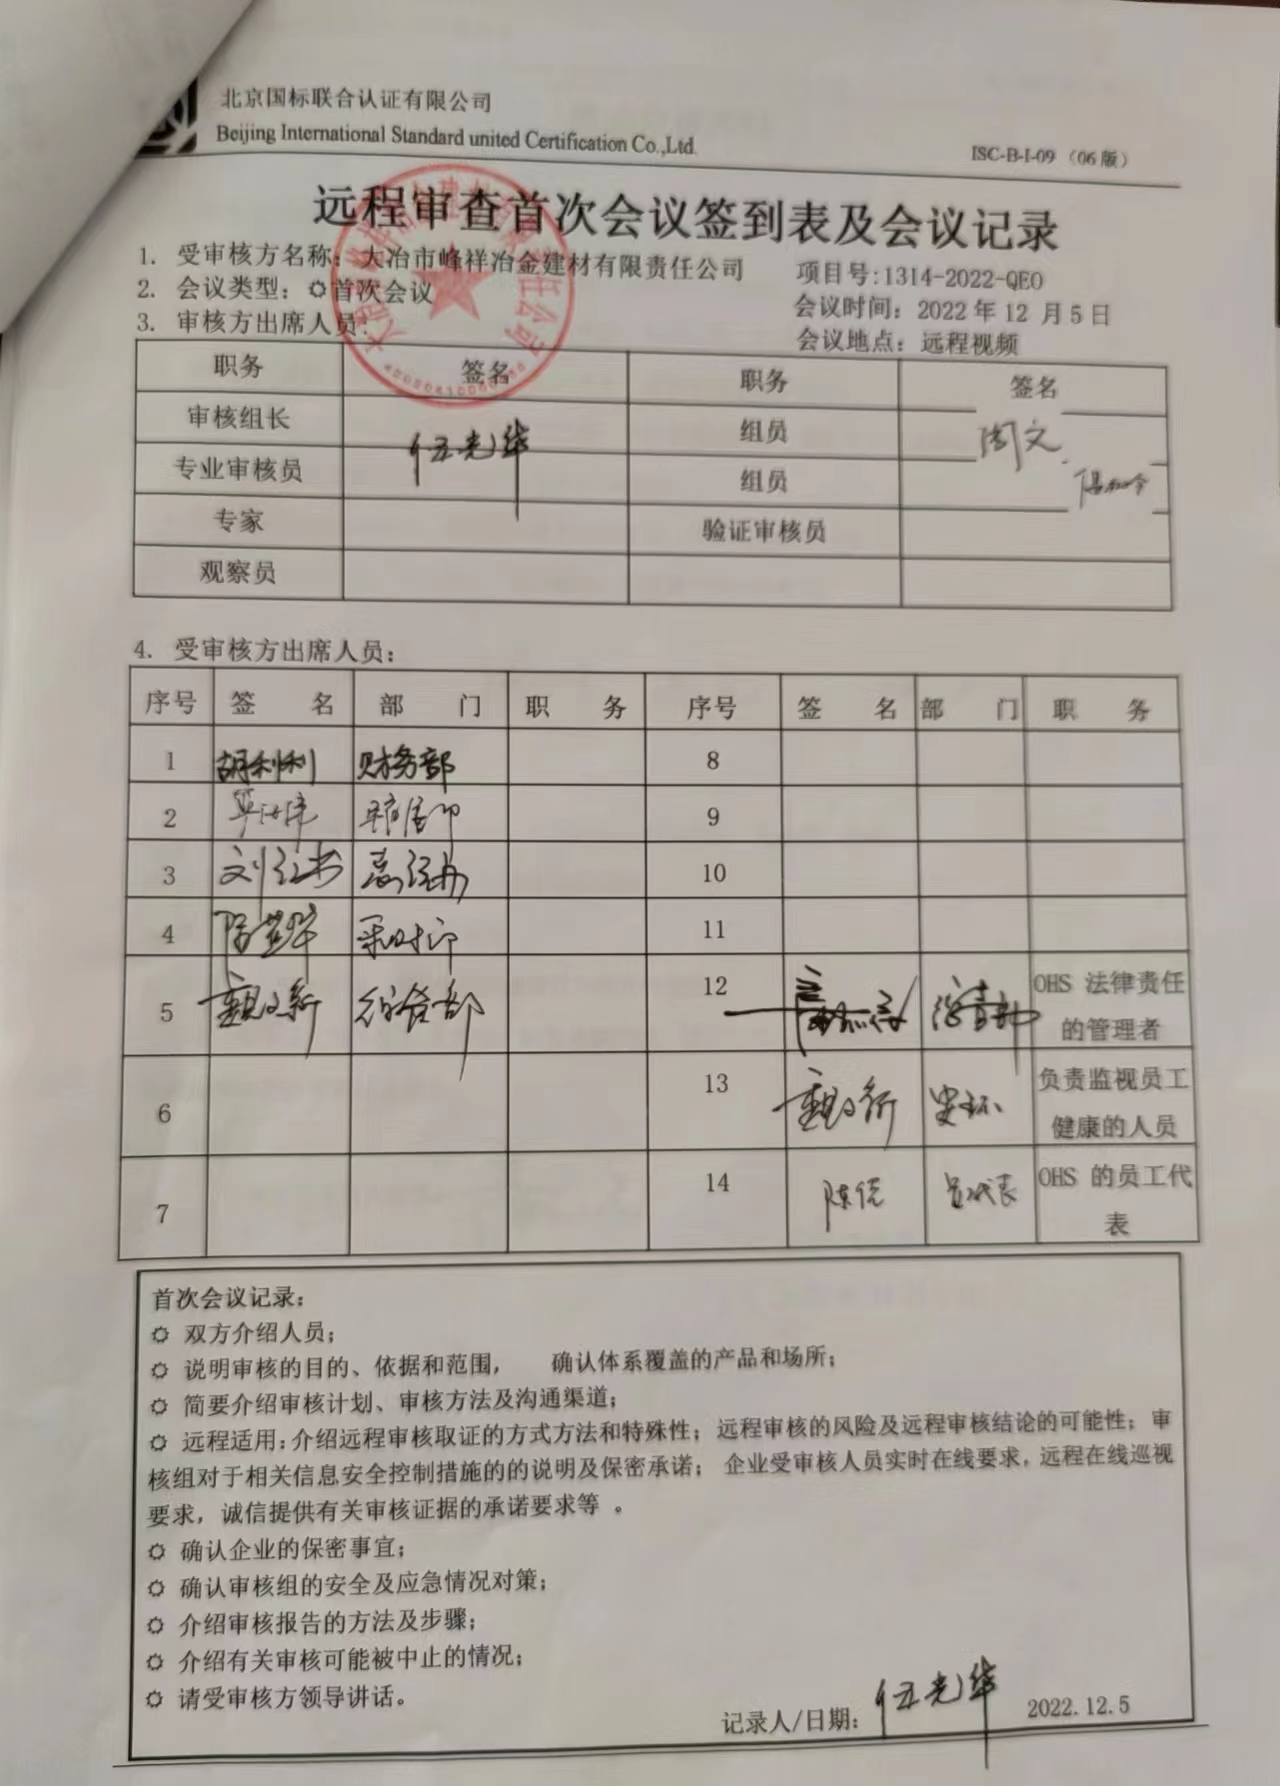 北京国标联合认证有限公司
Beijing International Standard united Certification Co.,Ltd.
ISC-B-I-09 （06版）
远程审查首次会议签到表及会议记录
1. 受审核方名称：大冶市峰祥冶金建材有限责任公司 项目号:1314-2022-QEO
2. 会议类型：首次会议 会议时间：2022年12月5日
3. 审核方出席人员： 会议地点：远程视频
职务 签名 职务 签名
审核组长 伍光华 组员 周文
专业审核员 组员
专家 验证审核员
观察员
4. 受审核方出席人员：
序号 签 名 部 门 职 务 序号 签 名 部 门 职 务
1 胡利利 财务部 8
2 9
3 刘红书 总经办 10
4 11
5 12 OHS 法律责任
的管理者
6 13 安环 负责监视员工
健康的人员
7 14 OHS 的员工代
表
首次会议记录：
双方介绍人员；
说明审核的目的、依据和范围， 确认体系覆盖的产品和场所；
简要介绍审核计划、审核方法及沟通渠道；
远程适用：介绍远程审核取证的方式方法和特殊性；远程审核的风险及远程审核结论的可能性；审
核组对于相关信息安全控制措施的的说明及保密承诺； 企业受审核人员实时在线要求，远程在线巡视
要求，诚信提供有关审核证据的承诺要求等 。
确认企业的保密事宜；
确认审核组的安全及应急情况对策；
介绍审核报告的方法及步骤；
介绍有关审核可能被中止的情况；
请受审核方领导讲话。
记录人/日期：伍光华 2022.12.5